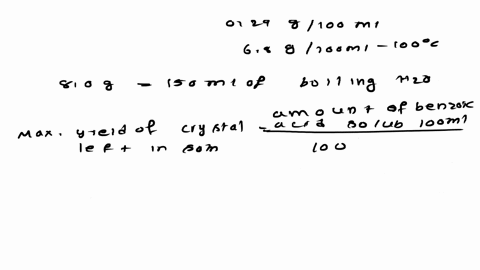 0.29 g/100 ml
6.8 g/100ml - 100°c
8.0 g = 150 ml of boiling H20
amount of benzoic
max. yield of crystal = acid solub 100ml
left in soln 100